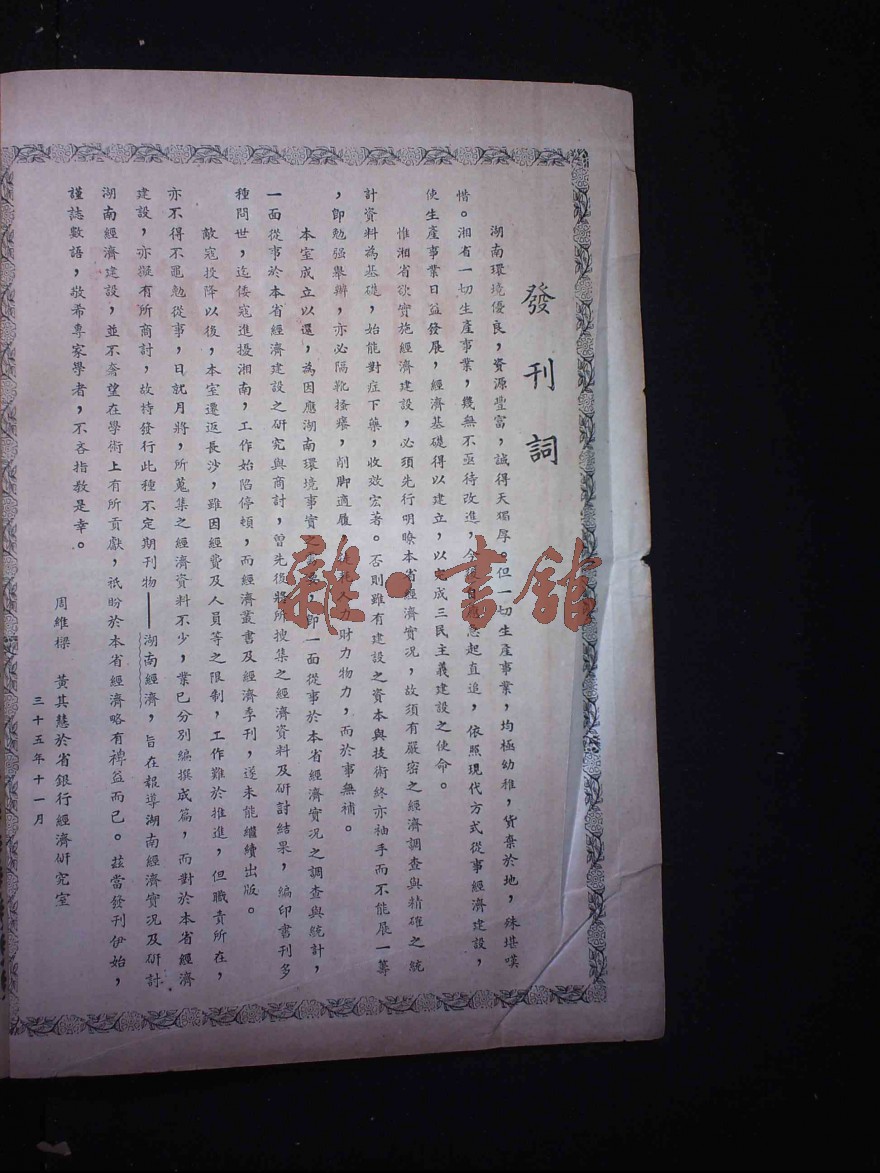 發刊詞
湖南環境優良，資源豐富，誠得天獨厚。但一切生產事業，均極幼稚，貨棄於地，殊堪嘆
惜。湘省一切生產事業，幾無不亟待改進，今急起直追，依照現代方式從事經濟建設，
使生產事業日益發展，經濟基礎得以建立，以完成三民主義建設之使命。
惟湘省欲實施經濟建設，必須先行明瞭本省經濟實況，故須有嚴密之經濟調查與精確之統
計資料為基礎，始能對症下藥，收效宏著。否則雖有建設之資本與技術終亦袖手而不能展一籌
，即勉强舉辦，亦必隔靴搔癢，削脚適履，人力財力物力，而於事無補。
本室成立以還，為因應湖南環境事實之，即一面從事於本省經濟實況之調查與統計，
一面從事於本省經濟建設之研究與商討，曾先後將所搜集之經濟資料及研討結果，編印書刊多
種問世，迄倭寇進擾湘南，工作始陷停頓，而經濟叢書及經濟季刊，遂未能繼續出版。
敵寇投降以後，本室遷返長沙，雖因經費及人員等之限制，工作難於推進，但職責所在，
亦不得不黽勉從事，日就月將，所蒐集之經濟資料不少，業已分別編撰成篇，而對於本省經濟
建設，亦擬有所商討，故特發行此種不定期刊物——湖南經濟，旨在報導湖南經濟實況及研討
湖南經濟建設，並不奢望在學術上有所貢獻，祇盼於本省經濟略有裨益而已。茲當發刊伊始，
謹誌數語，敬希專家學者，不吝指教是幸。
周維樑 黃其慧於省銀行經濟研究室
三十五年十一月
雜·書館